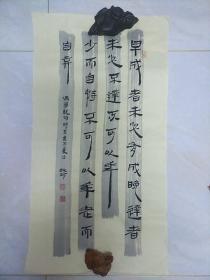 早成者未必有成晚達者
未必不達不可以年
少而自恃不可以年老而
自弃
馮夢龍句